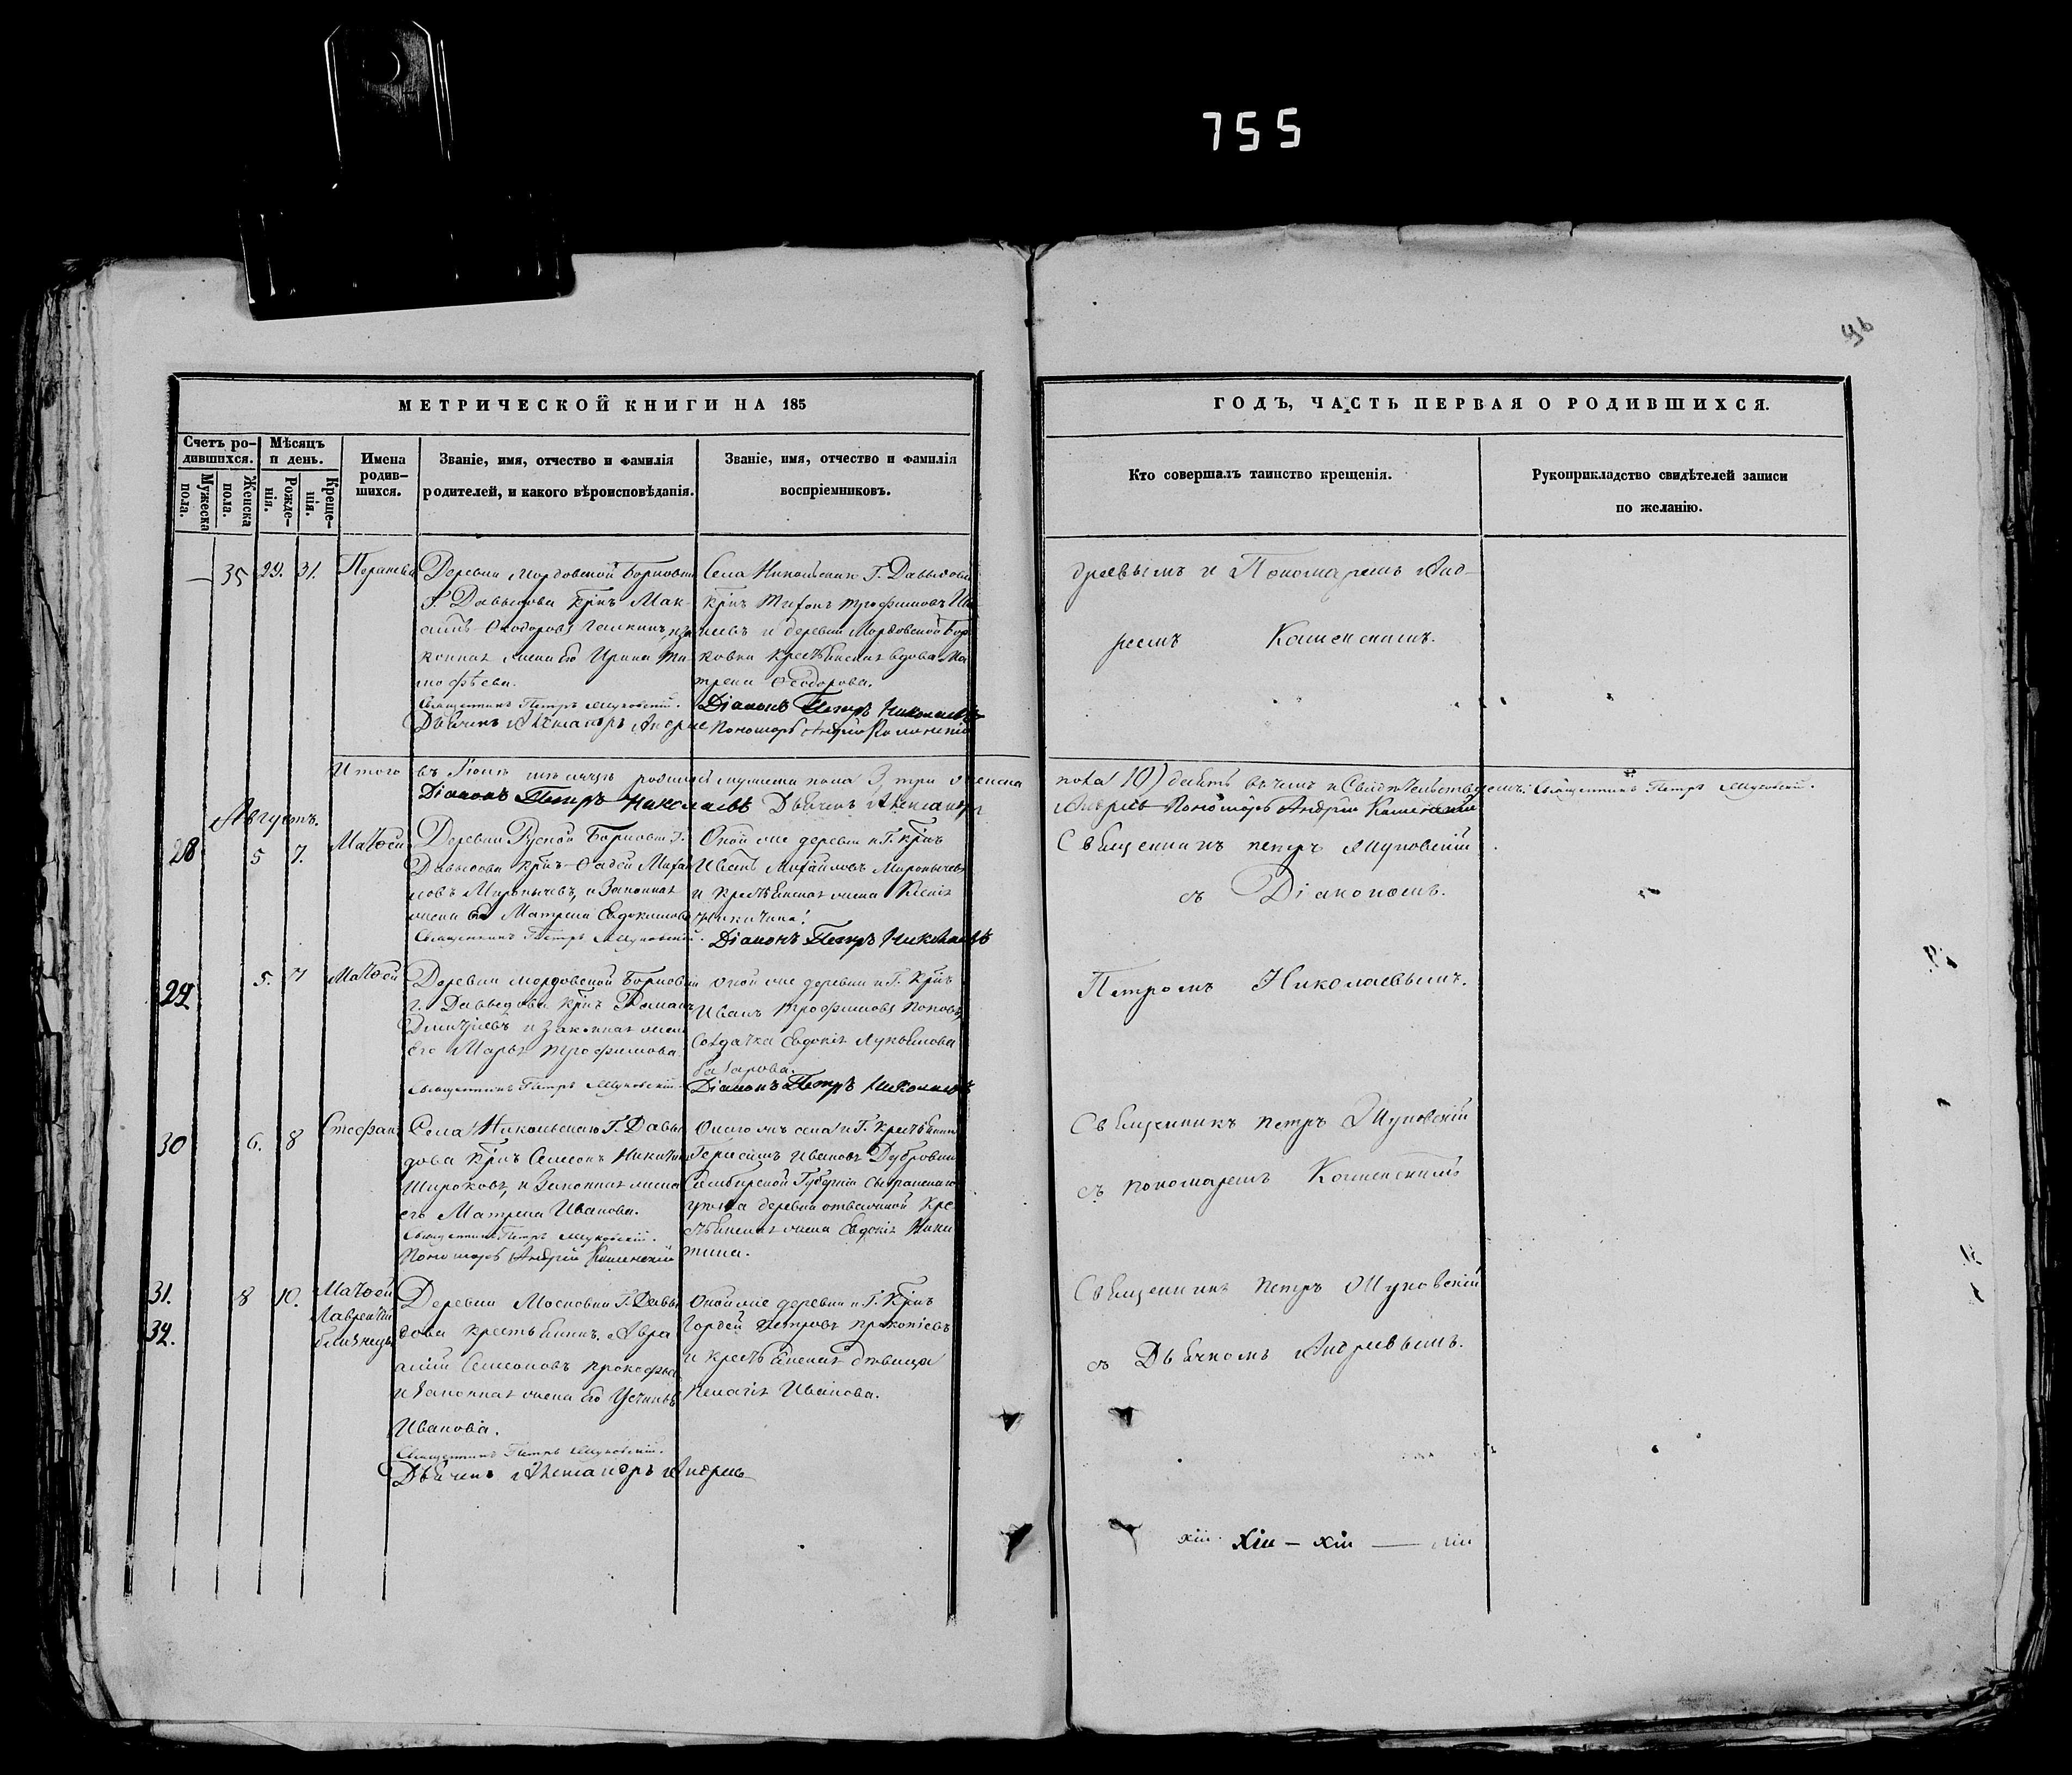 755
96
МЕТРИЧЕСКОЙ КНИГИ НА 185
Счетъ ро-
дившихся.
Мужеска
пола.
Женска
пола.
Мѣсяцъ
и день.
Рожде-
нія.
Креще-
нія.
Имена
родив-
шихся.
Званіе, имя, отчество и фамилія
родителей, и какого вѣроисповѣданія.
Званіе, имя, отчество и фамилія
воспріемниковъ.
ГОДЪ, ЧАСТЬ ПЕРВАЯ О РОДИВШИХСЯ.
Кто совершалъ таинство крещенія.
Рукоприкладство свидѣтелей записи
по желанію.
— 35 29. 31.
Деревни Мордовской Борковки
Г. Давыдова Крнъ Мак-
симъ Ѳеодоровъ
конная жена его Ирина Ти-
мофѣева.
Священникъ Петръ Муковскій.
Дьячекъ Александръ Андрие
Села Никольскаго Г. Давыдова
Крнъ Тихонъ Трофимовъ
и деревни Мордовской Бор
ковки крестьянская вдова Ма
трена Ѳеодорова.
Діаконъ Петръ Николаевъ
Пономарь Андрей Каменскій
древымъ и Пономаремъ Анд-
реемъ Каменскимъ.
Итого въ Іюлѣ мѣсяцѣ мужеска пола 3 три женска
пола 10) десять въ чемъ и Свидѣтельствуемъ: Священникъ Петръ Муковскій.
Діаконъ Петръ Николаевъ Дьячекъ Александръ
Андреевъ Пономарь Андрей Каменскій
Августъ.
28 5 7. Матѳей
Деревни Руской Борковки Г.
Давыдова Крнъ Ѳадей Михаи
ловъ Миронычевъ, и Законная
жена его Матрена Евдокимова
Священникъ Петръ Муковскій.
Оной же деревни и Г. Крнъ
Иванъ Михайловъ Миронычевъ
и крестьянская жена Ксенія
Никитина.
Діаконъ Петръ Николаевъ
Священникъ Петръ Муковскій
съ Діакономъ.
29 5. 7 Матѳей
Деревни Мордовской Борковки
Г. Давыдова Крнъ Романъ
Дмитріевъ и Законная жена
Его Марья Трофимова
Священникъ Петръ Муковскій.
Оной же деревни и Г. Крнъ
Иванъ Трофимовъ Поповъ,
Солдатка Евдокія Лукьянова
Діаконъ Петръ Николаевъ
Петромъ Николаевымъ.
30 6. 8 Стефанъ
Села Никольскаго Г. Давы
дова Крнъ Семенъ Никитинъ
Широковъ, и Законная жена
его Матрена Иванова.
Священникъ Петръ Муковскій.
Пономарь Андрей Каменскій
Онаго жъ села и Г. Крестьянинъ
Герасимъ Ивановъ Дубровинъ
Симбирской Губерніи Сызранскаго
уѣзда деревни отважной Кре
стьянская жена Евдокія Ники
тина.
Священникъ Петръ Муковскій
съ пономаремъ Каменскимъ
31. 8 10. Матѳей
32. Лаврентій
близнецы
Деревни Московки Г. Давы
дова крестьянинъ Авра
амій Семеновъ Прокофье
и Законная жена его Устинья
Иванова.
Священникъ Петръ Муковскій.
Дьячекъ Александръ Андреевъ
Оной же деревни и Г. Крнъ
Гордей Петровъ Прокопіевъ
и крестьянская дѣвица
Пелагія Иванова.
Священникъ Петръ Муковскій
съ Дьячкомъ Андреевымъ.